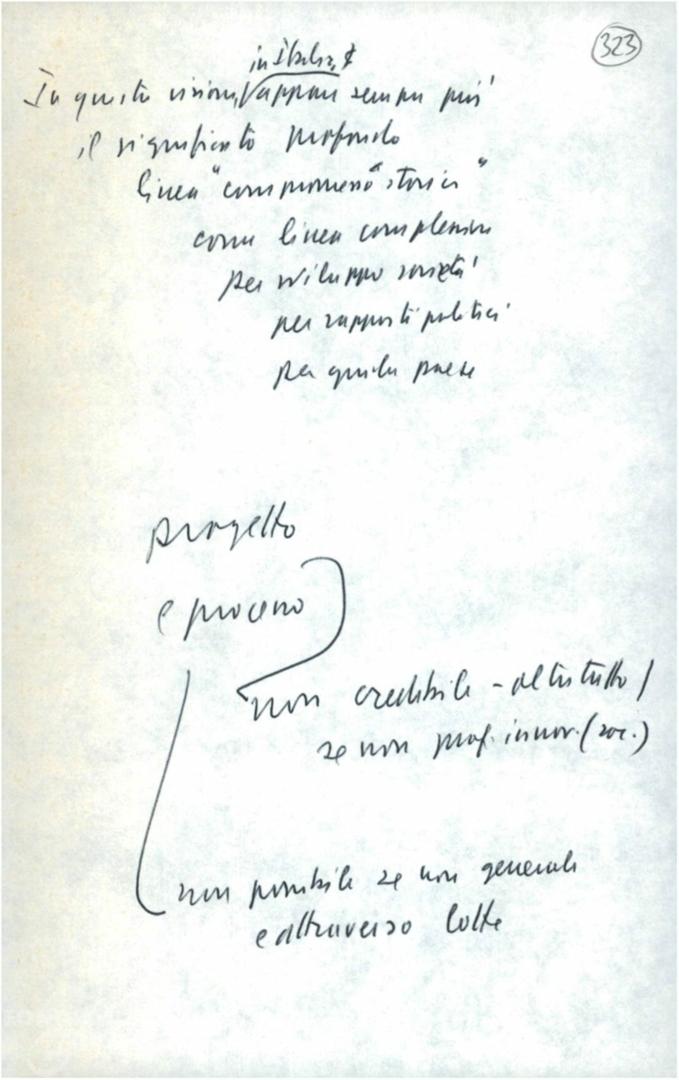 323
in Italia,
In questa visione, appare sempre più
il significato profondo
linea "compromesso" storico"
come linea complessiva
per sviluppo società
per rapporti politici
per guida paese
progetto
e processo
non credibile - oltretutto /
se non prof. innov. (soc.)
non possibile se non generale
e attraverso lotte